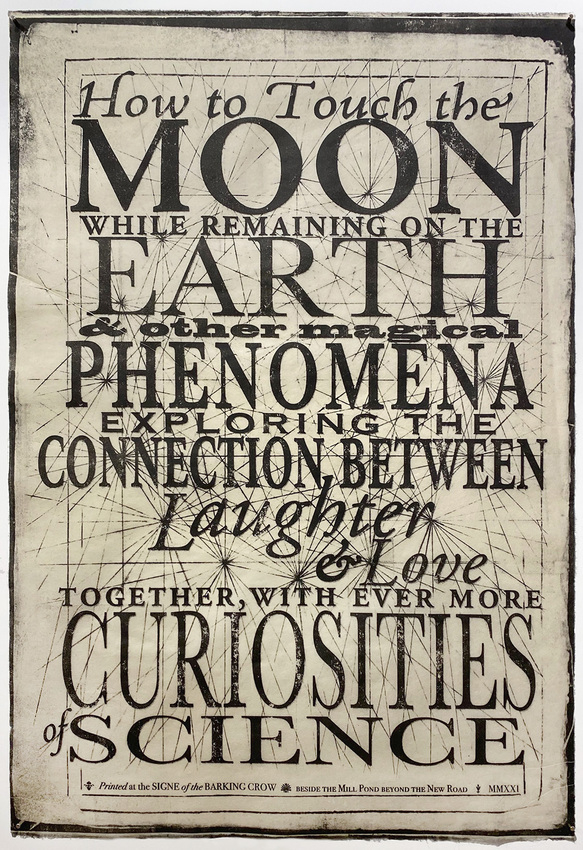 How to Touch the
MOON
WHILE REMAINING ON THE
EARTH
& other magical
PHENOMENA
EXPLORING THE
CONNECTION BETWEEN
Laughter
& Love
TOGETHER, WITH EVER MORE
CURIOSITIES
of SCIENCE
Printed at the SIGNE of the BARKING CROW BESIDE THE MILL POND BEYOND THE NEW ROAD MMXXI